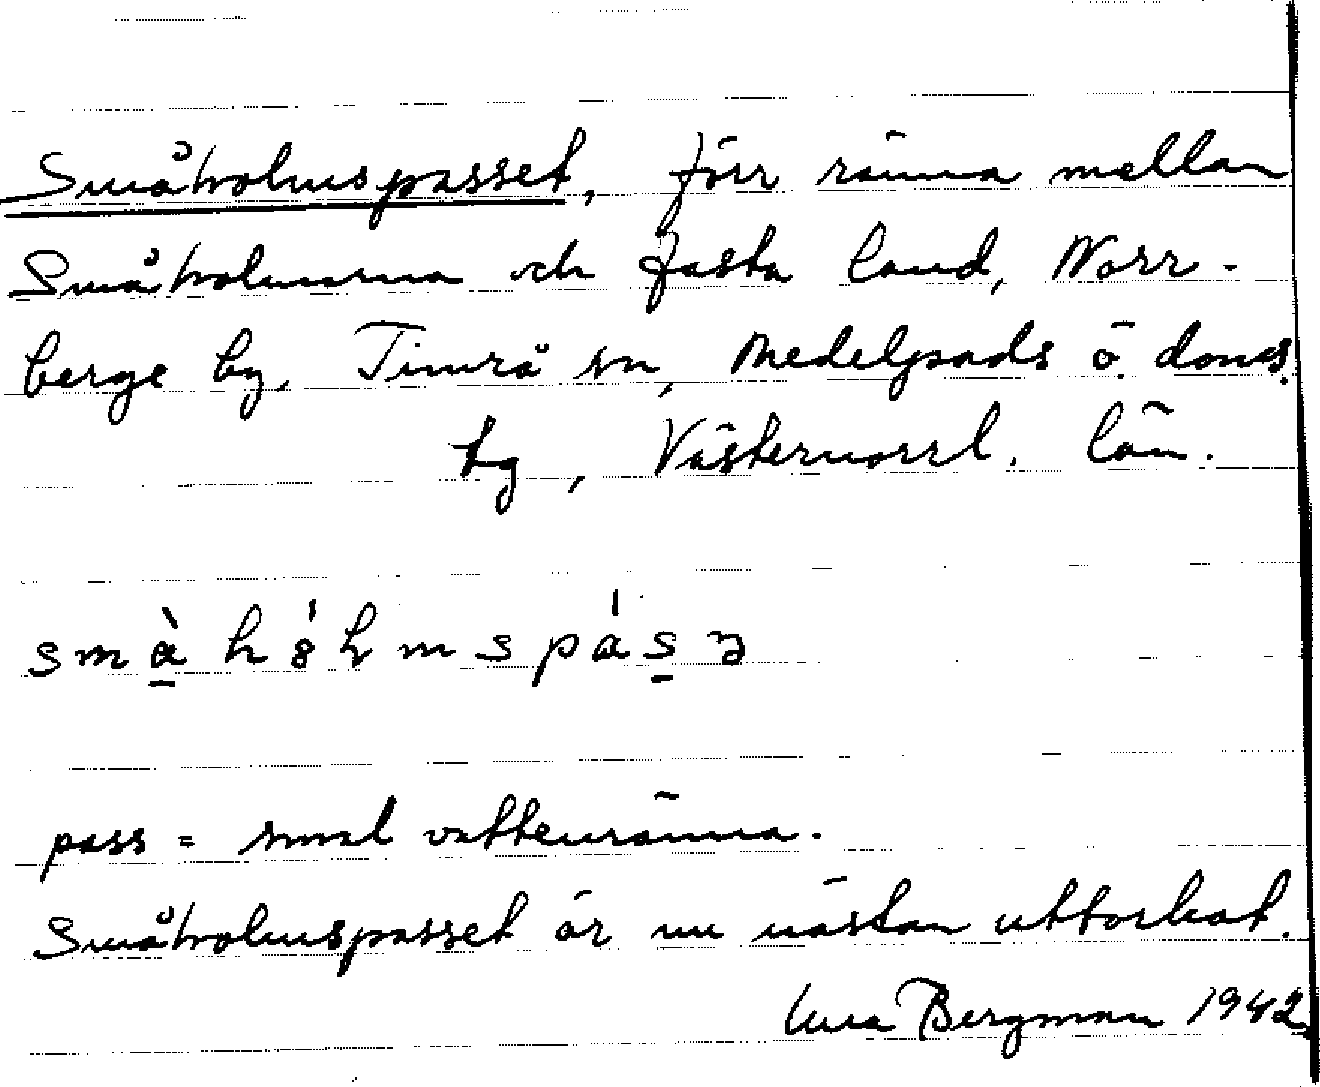 Småholmspasset, förr ränna mellan
Småholmarna och fasta land, Norr-
berge by, Timrå sn, Medelpads ö. doms.
hg, Västernorrl. län.
smà hólmspásə
pass = smal vattenränna.
Småholmspasset är nu nästan uttorkat.
Bergman 1942